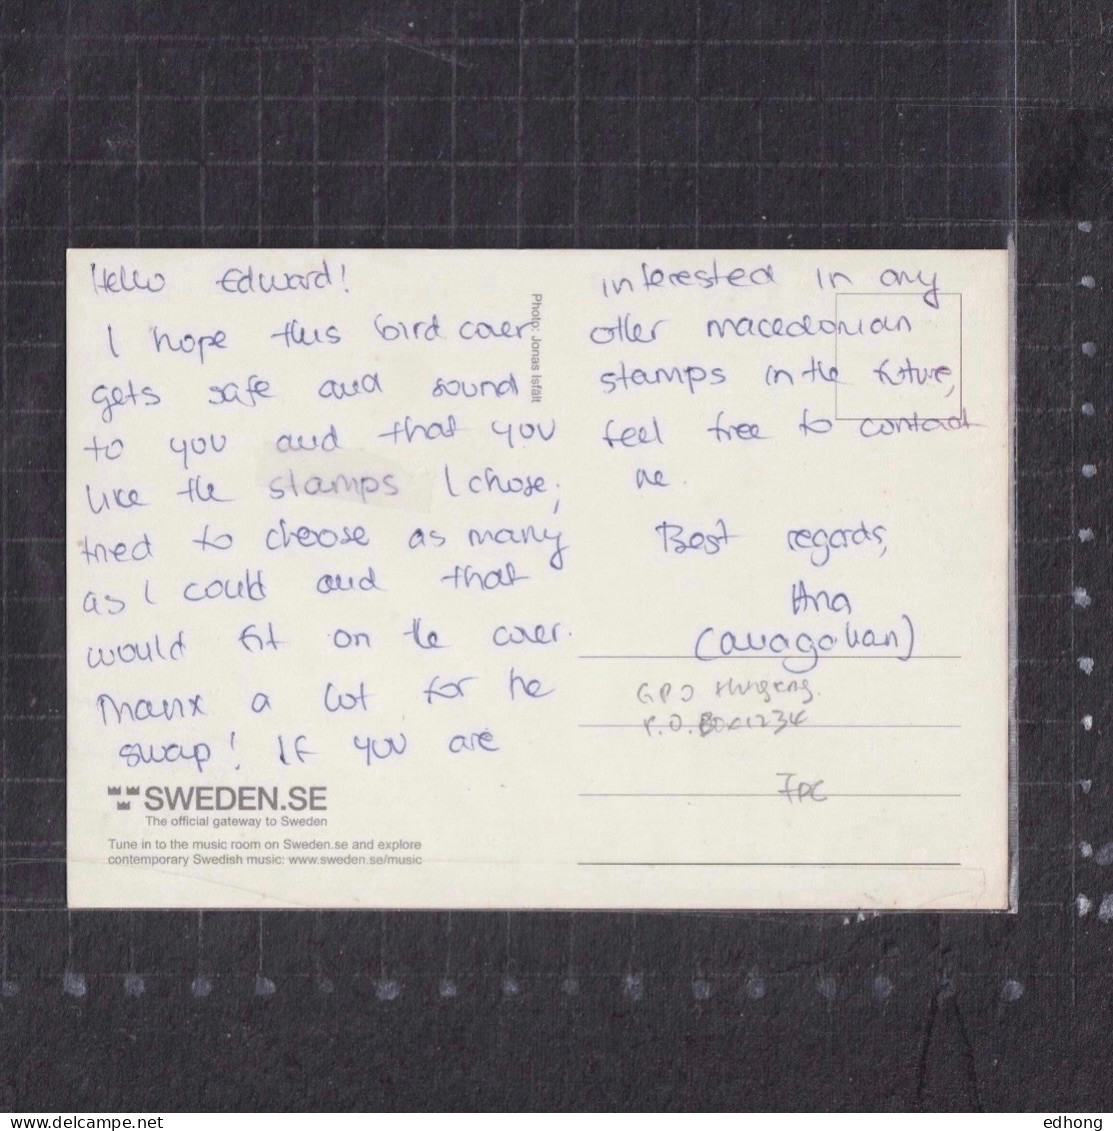 Hello Edward!
I hope this bird cover
gets safe and sound
to you and that you
like the stamps I chose,
tried to choose as many
as I could and that
would fit on the cover.
Thanx a lot for the
swap! If you are
interested in any
other macedonian
stamps in the future,
feel free to contact
me.
Best regards,
Ana
Photo: Jonas Isfält
SWEDEN.SE
The official gateway to Sweden
Tune in to the music room on Sweden.se and explore
contemporary Swedish music: www.sweden.se/music
P.O. Box 1234
delcampe.net
edhong